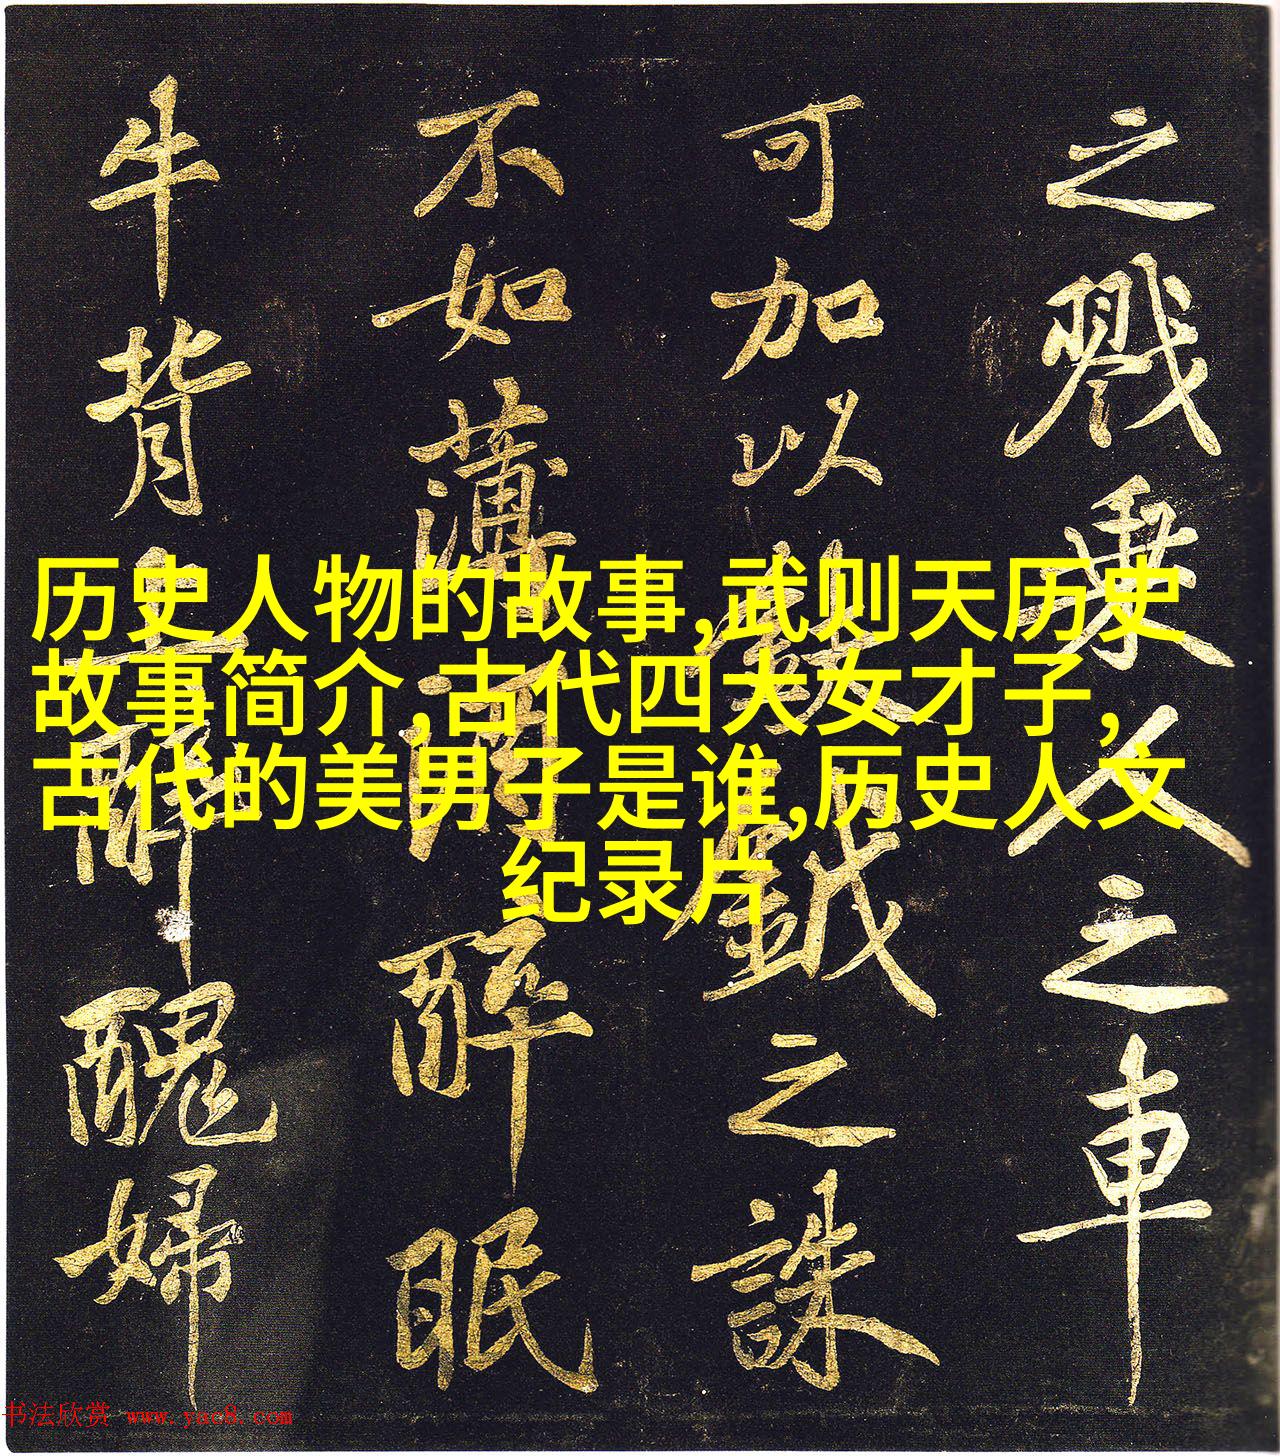 之戮乘人之車
可加以鉞之誅
不如薄醉眠
牛背上醜婦
历史人物的故事,武则天历史
故事简介,古代四大女才子,
古代的美男子是谁,历史人文
纪录片
书法欣赏 www.yac8.com